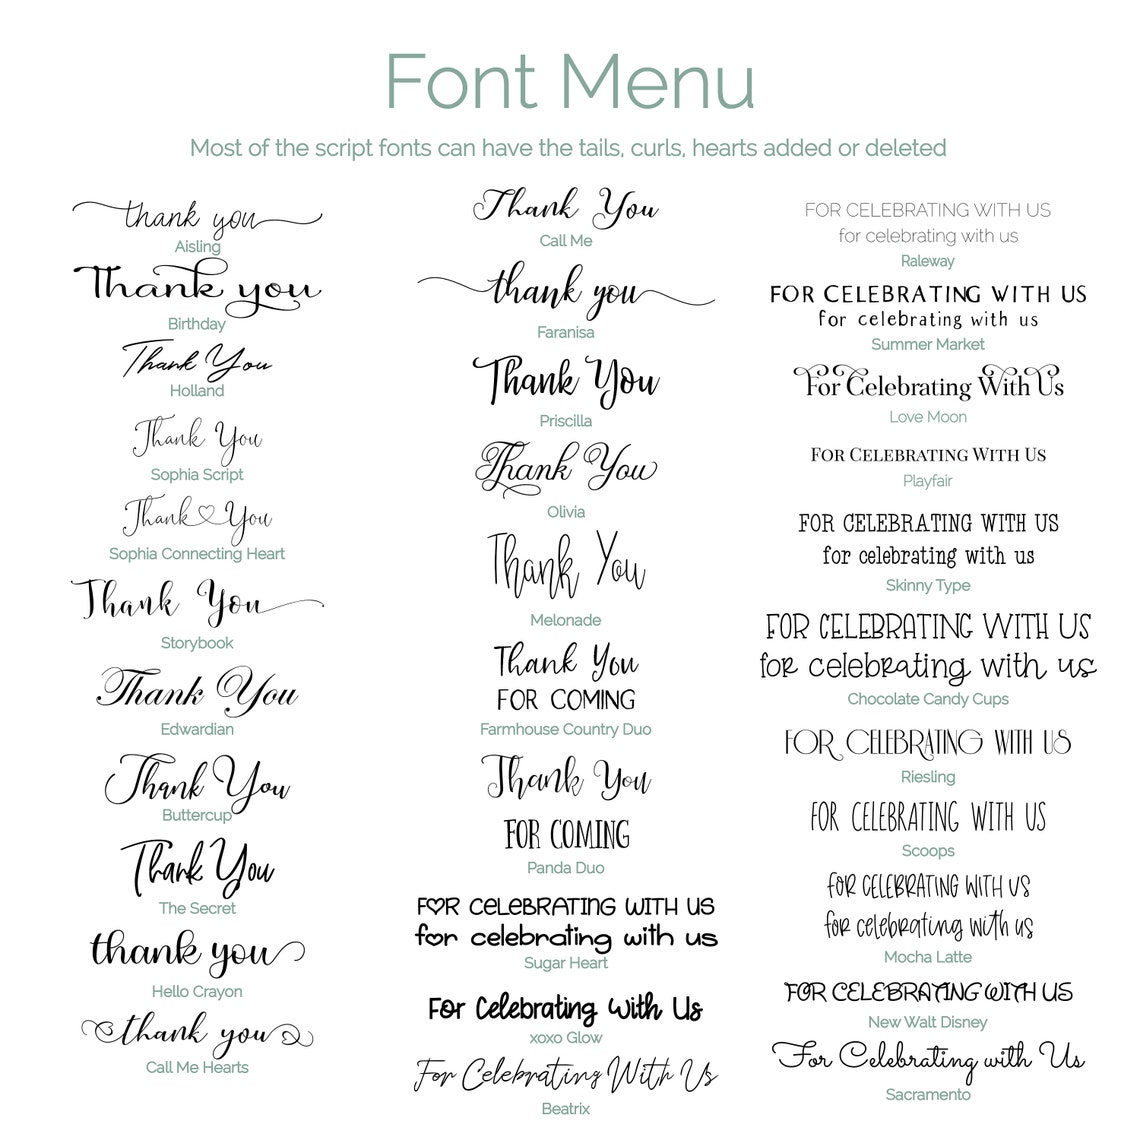 Font Menu
Most of the script fonts can have the tails, curls, hearts added or deleted
thank you
Aisling
Thank you
Birthday
Thank You
Holland
Thank You
Sophia Script
Thank You
Sophia Connecting Heart
Thank You
Storybook
Thank You
Edwardian
Thank You
Buttercup
Thank You
The Secret
thank you
Hello Crayon
thank you
Call Me Hearts
Thank You
Call Me
thank you
Faranisa
Thank You
Priscilla
Thank You
Olivia
Thank You
Melonade
Thank You
FOR COMING
Farmhouse Country Duo
Thank You
FOR COMING
Panda Duo
FOR CELEBRATING WITH US
for celebrating with us
Sugar Heart
For Celebrating With Us
xoxo Glow
For Celebrating With Us
Beatrix
FOR CELEBRATING WITH US
for celebrating with us
Raleway
FOR CELEBRATING WITH US
for celebrating with us
Summer Market
For Celebrating With Us
Love Moon
For Celebrating With Us
Playfair
FOR CELEBRATING WITH US
for celebrating with us
Skinny Type
FOR CELEBRATING WITH US
for celebrating with us
Chocolate Candy Cups
FOR CELEBRATING WITH US
Riesling
FOR CELEBRATING WITH US
Scoops
FOR CELEBRATING WITH US
for celebrating with us
Mocha Latte
FOR CELEBRATING WITH US
New Walt Disney
For Celebrating with Us
Sacramento